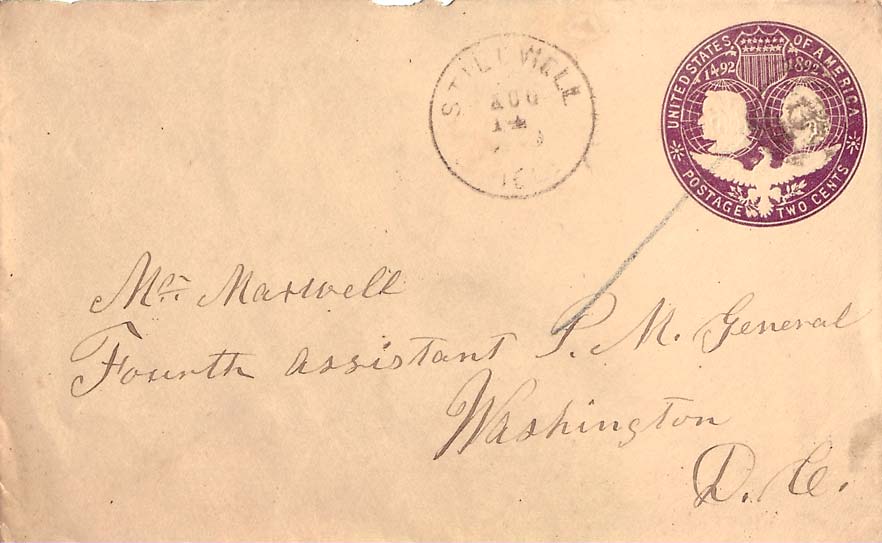 STILLWELL
AUG
14
UNITED STATES OF AMERICA
1492 1892
POSTAGE TWO CENTS
Mr. Maxwell
Fourth Assistant P. M. General
Washington
D. C.